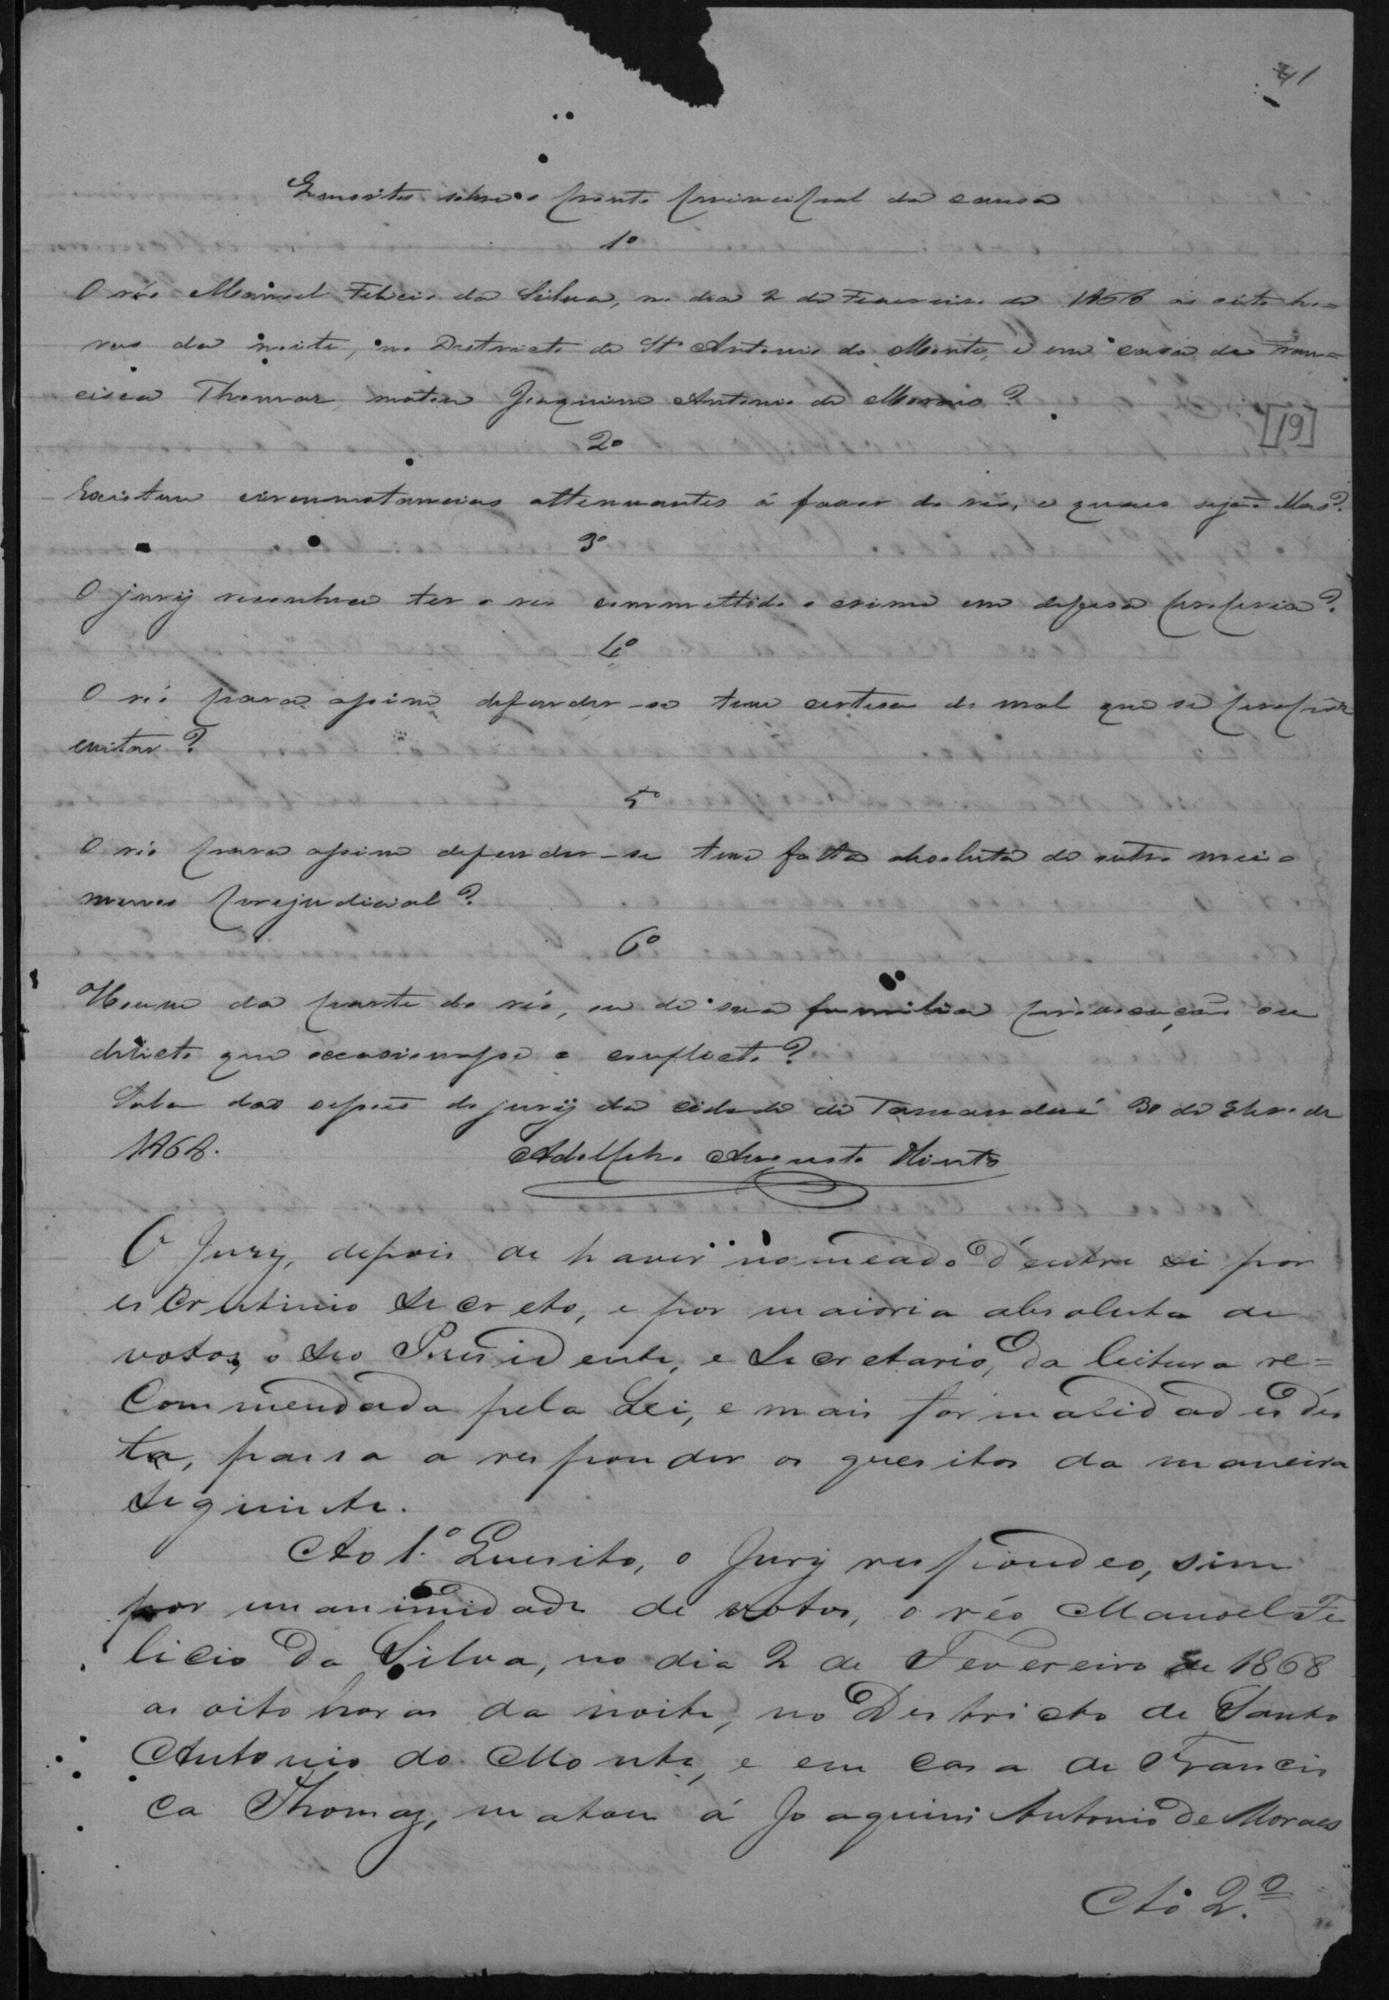 41
Quesitos sobre o ponto principal da causa
1º
O réo Manoel Felicio da Silva, no dia 2 de Fevereiro de 1868 as oito ho-
ras da noite, no Districto de Stº Antonio do Monte, e em casa de Fran=
cisca Thomaz, matou Joaquim Antonio de Moraes?
[19]
2º
Existem circumstancias attenuantes á favor do réo, e quaes sejão ellas?
3º
O jury reconhece ter o reo commettido o crime em defesa propria?
4º
O réo para assim defender-se teve certesa do mal que se propôz
evitar?
5º
O réo para assim defender-se teve falta absoluta de outro meio
menos prejudicial?
6º
Houve da parte do réo, ou de sua familia provocação ou
delicto que occasionasse o conflicto?
Sala das sessões do jury da cidade de Tamanduá 30 de de
1868.
Adolpho Augusto
O Jury, depois de haver nomeado d'entre si por
escrutinio secreto, e por maioria absoluta de
votos, o seo Presidente, e Secretario, da leitura re=
commendada pela Lei, e mais formalidades des
ta, passa a responder os quesitos da maneira
seguinte.
Ao 1.º Quesito, o Jury respondeo, sim
por unanimidade de votos, o réo Manoel Fe
licio da Silva, no dia 2 de Fevereiro de 1868
as oito horas da noite, no Districto de Santo
Antonio do Monte, e em casa de Francis
ca Thomaz, matou á Joaquim Antonio de Moraes
Ao 2.º